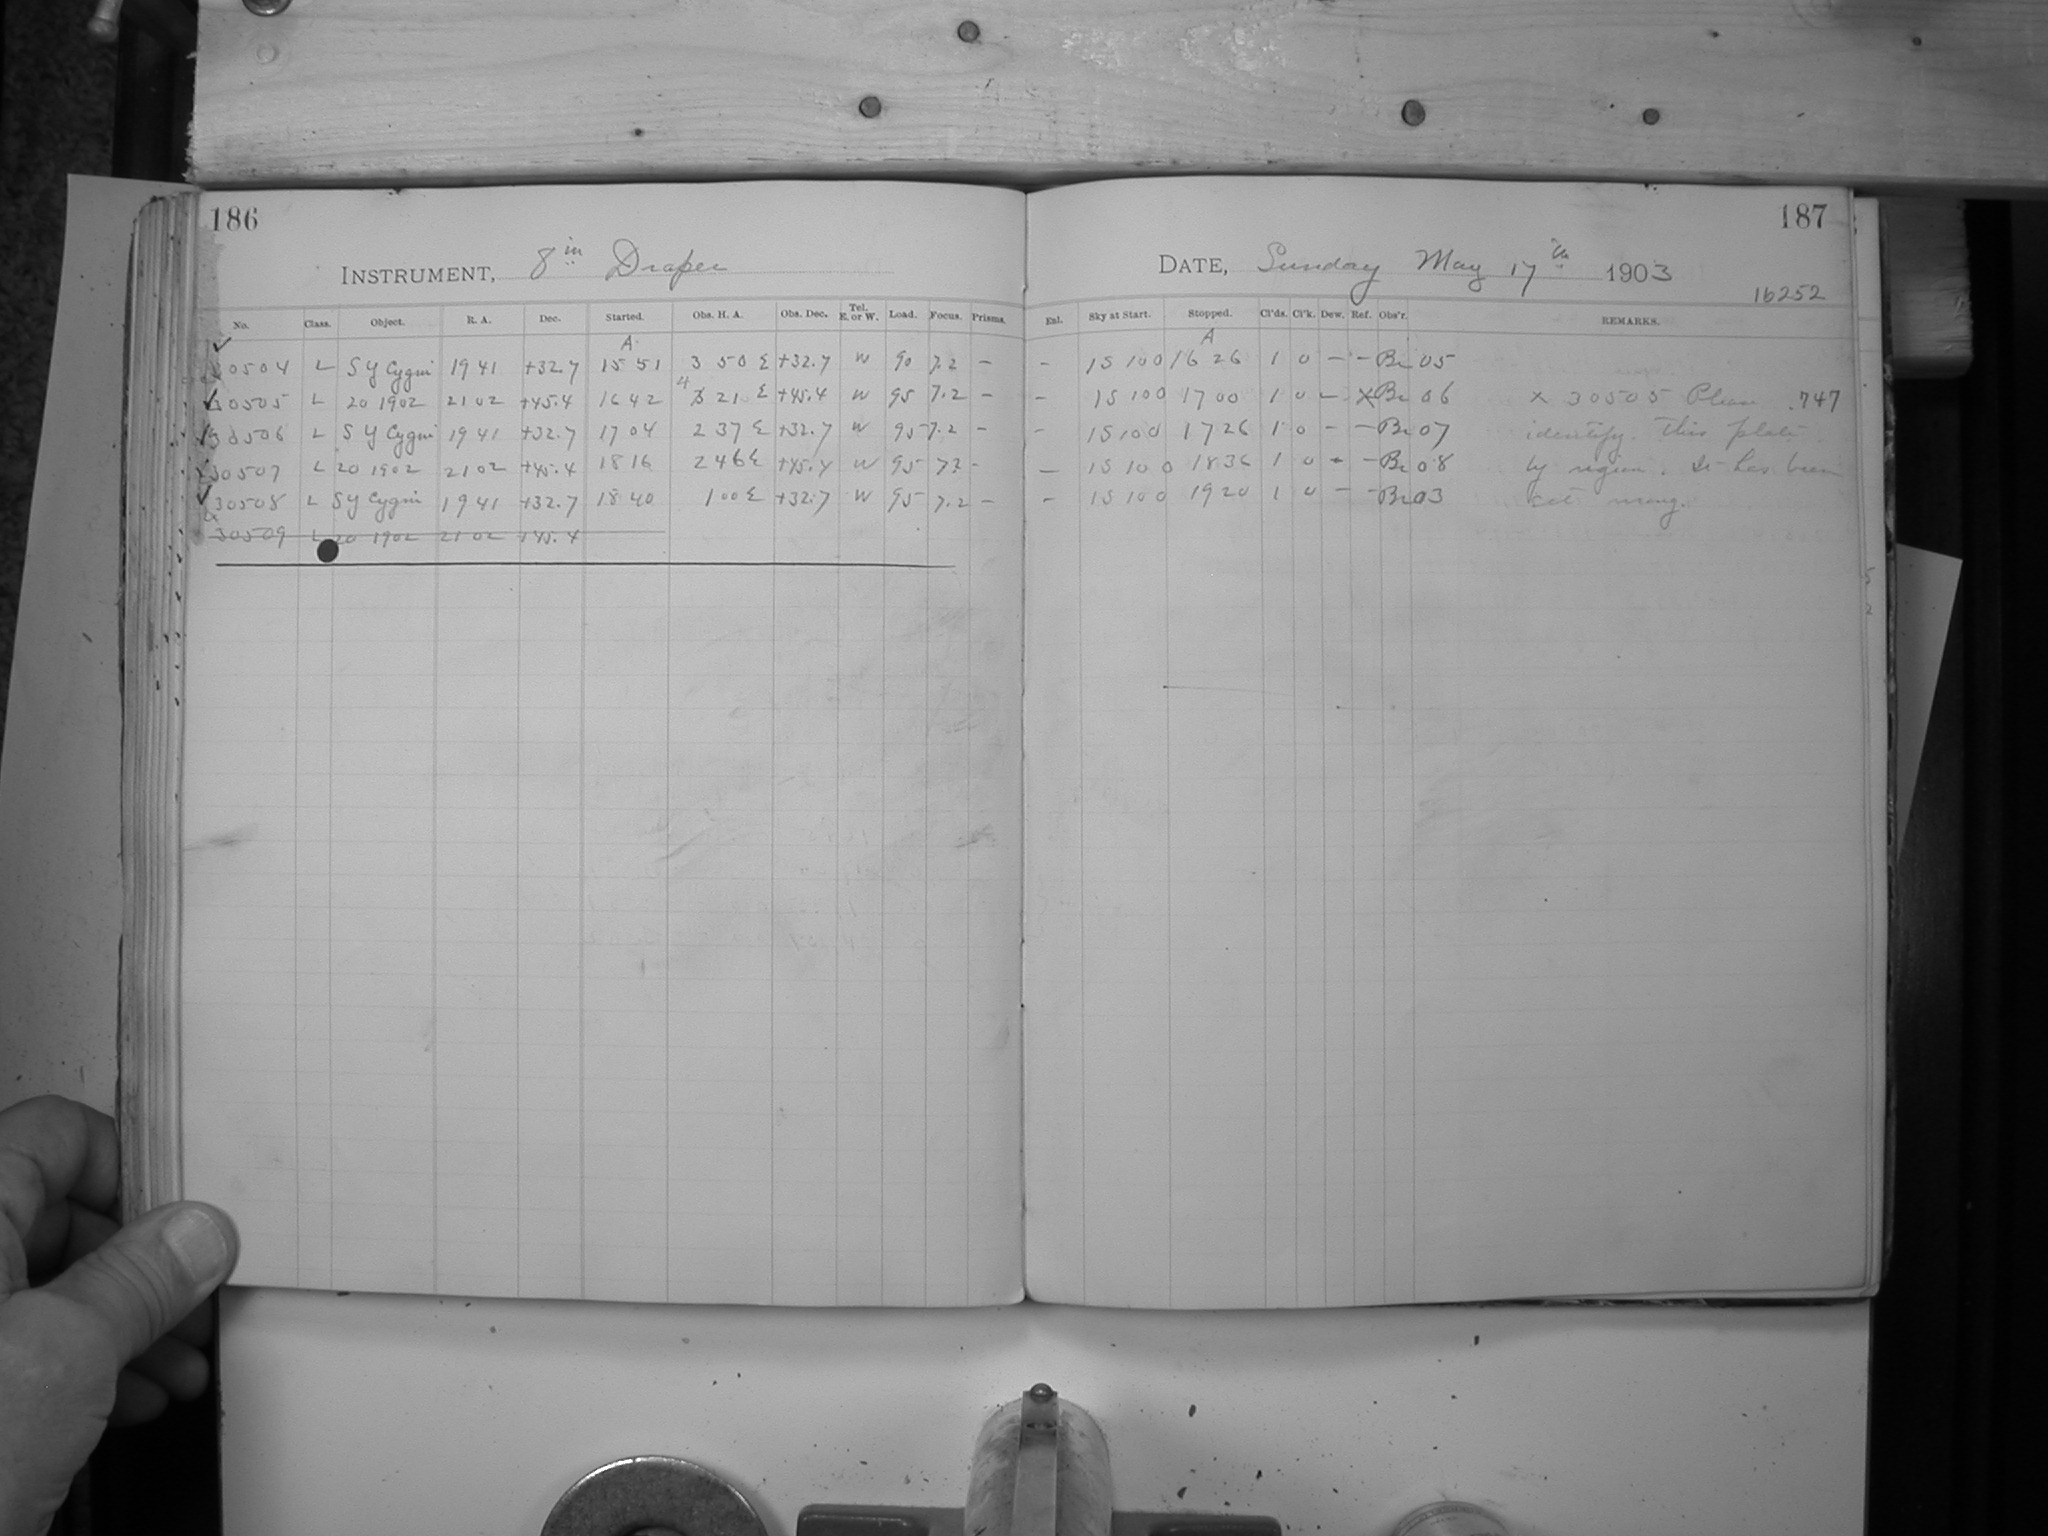 186
INSTRUMENT, 8in Draper
No. Class. Object. R. A. Dec. Started. Obs. H. A. Obs. Dec. Tel. E. or W. Load. Focus. Prisms.
A
30504 L SY Cygni 19 41 +32.7 15 51 3 50 E +32.7 W 90 7.2 –
30505 L 20 1902 21 02 +45.4 16 42 4 21 E +45.4 W 95 7.2 –
30506 L SY Cygni 19 41 +32.7 17 04 2 37 E +32.7 W 95 7.2 –
30507 L 20 1902 21 02 +45.4 18 16 2 46 E +45.4 W 95 7.2 –
30508 L SY Cygni 19 41 +32.7 18 40 1 00 E +32.7 W 95 7.2 –
30509 L 20 1902 21 02 +45.4
187
DATE, Sunday May 17th 1903
16252
Enl. Sky at Start. Stopped. Cl'ds. Cl'k. Dew. Ref. Obs'r. REMARKS.
A
– 15 100 16 26 1 0 – – Br 05
– 15 100 17 00 1 0 – X Br 06 x 30505 Please .747
– 15 100 17 26 1 0 – – Br 07 identify this plate
– 15 100 18 36 1 0 – – Br 08 by region. It has been
– 15 100 19 20 1 0 – – Br 03 set wrong.